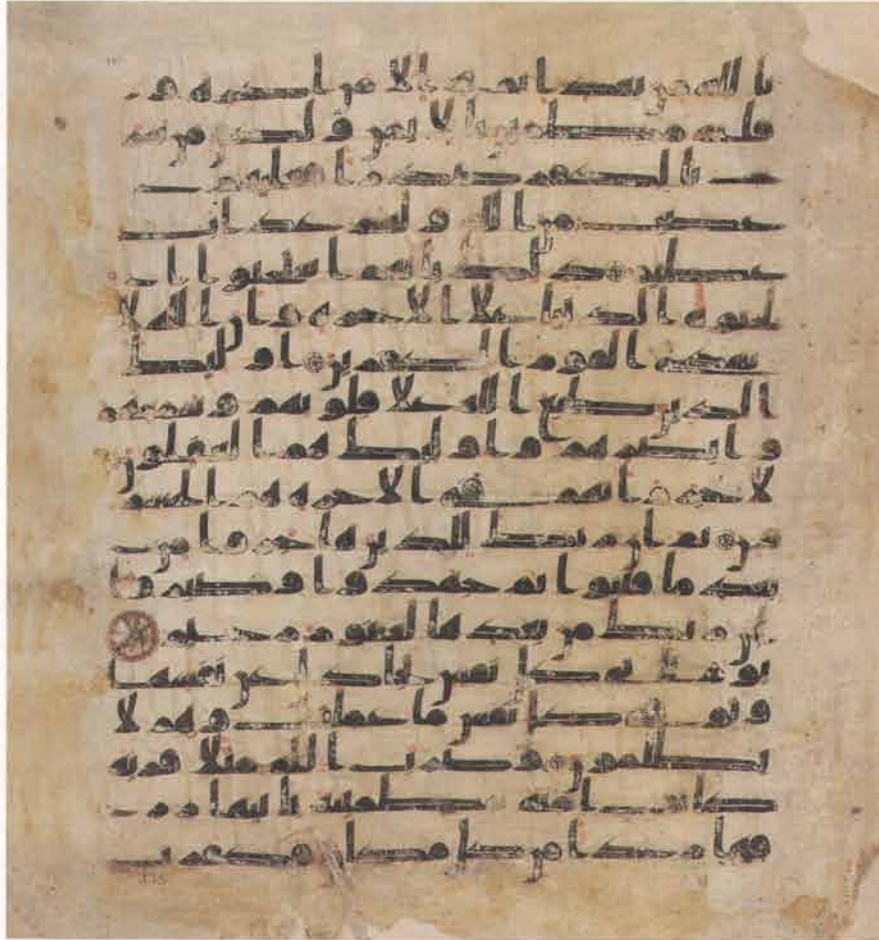 بالله من بعد ايمنه الا من اكره و
قلبه مطمئن بالايمن ولكن من شر
ح بالكفر صدرا فعليهم
غضب من الله ولهم عذاب
عظيم ذلك بانهم استحبوا ا
لحيوة الدنيا على الاخرة وان الله لا
يهدي القوم الكفرين اولئك
الذين طبع الله على قلوبهم وسمعهم
وابصرهم واولئك هم الغفلون
لا جرم انهم في الاخرة هم الخسر
ون ثم ان ربك للذين هاجروا من
بعد ما فتنوا ثم جهدوا وصبروا ا
ن ربك من بعدها لغفور رحيم
يوم تاتي كل نفس تجدل عن نفسها
وتوفى كل نفس ما عملت وهم لا
يظلمون وضرب الله مثلا قرية
كانت امنة مطمئنة ياتيها ر
زقها رغدا من كل مكان فكفرت